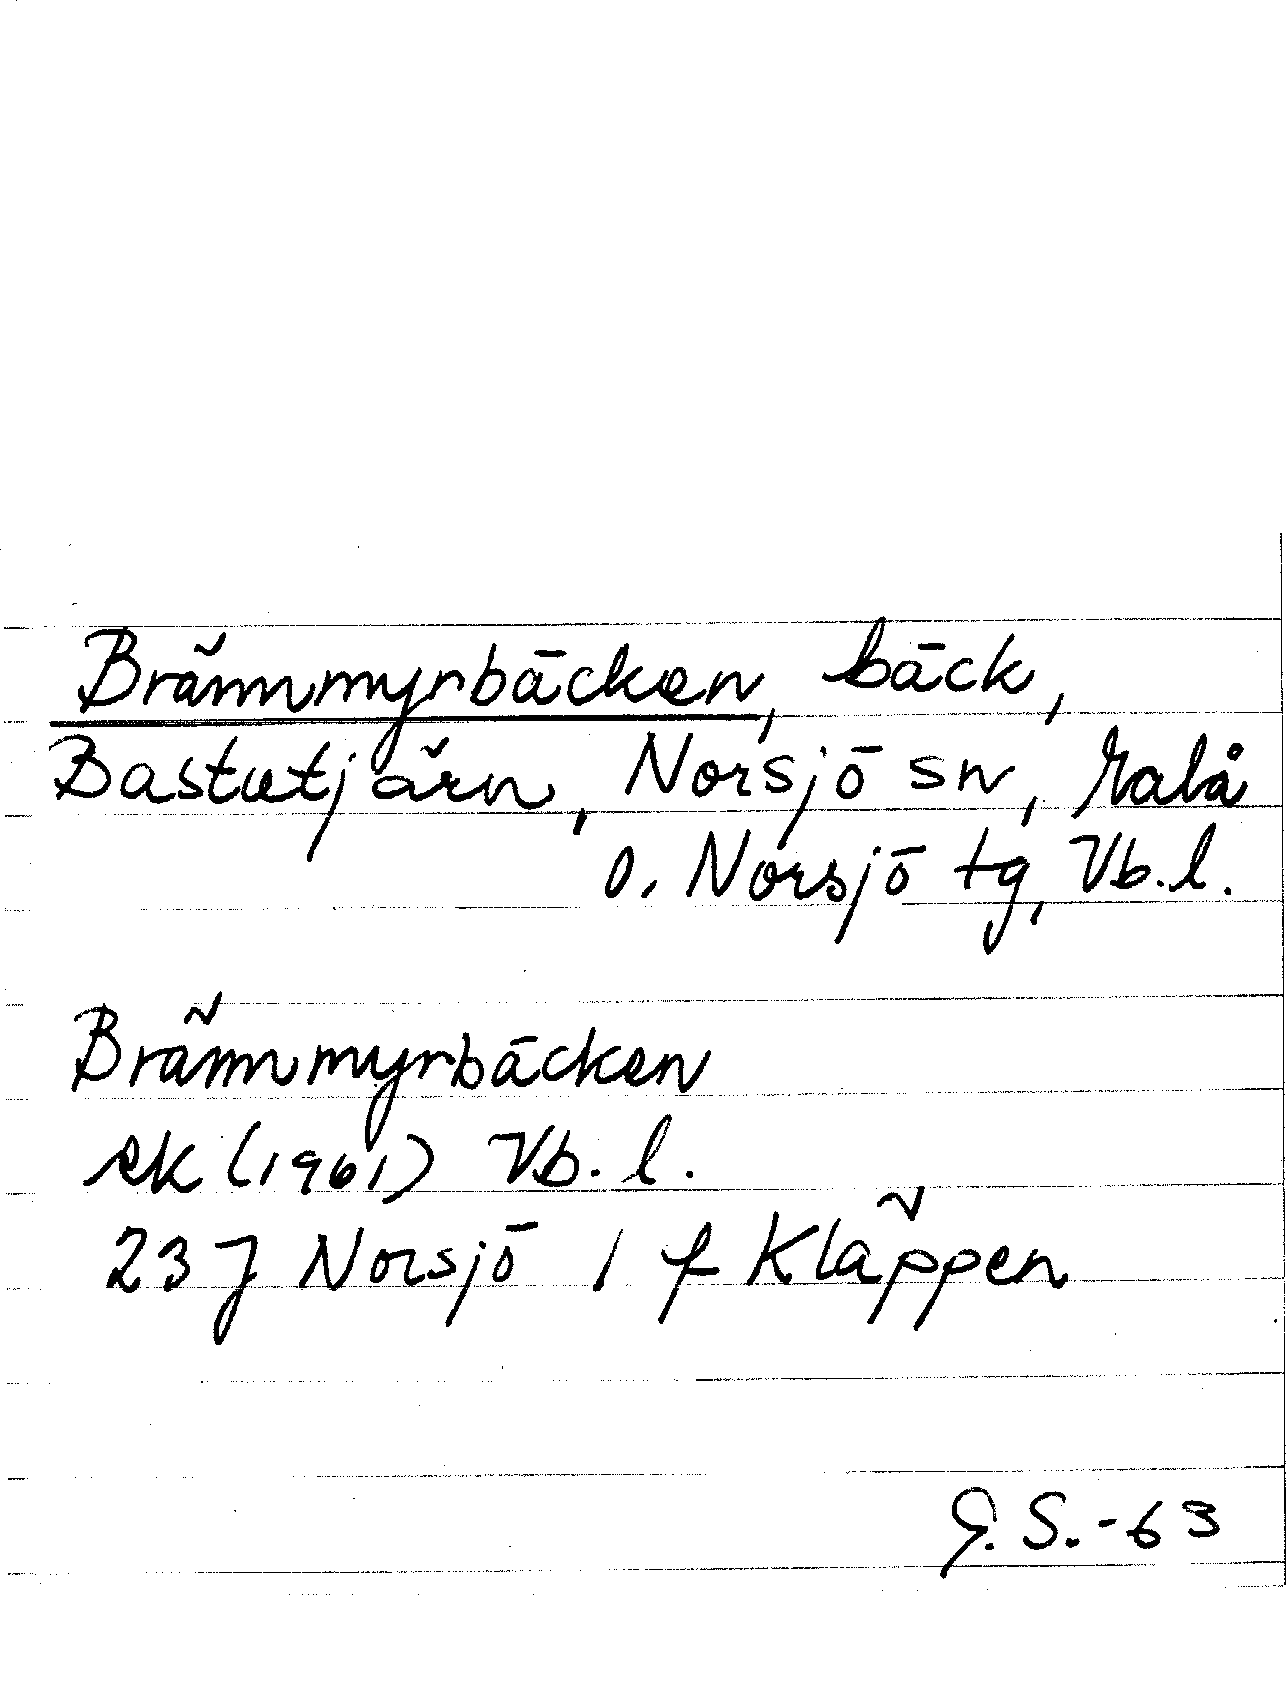 Brännmyrbäcken, bäck,
Bastutjärn, Norsjö sn, Malå
o. Norsjö tg, Vb.l.
Brännmyrbäcken
ek (1961) Vb. l.
23 J Norsjö 1 f Kläppen
G. S. -63